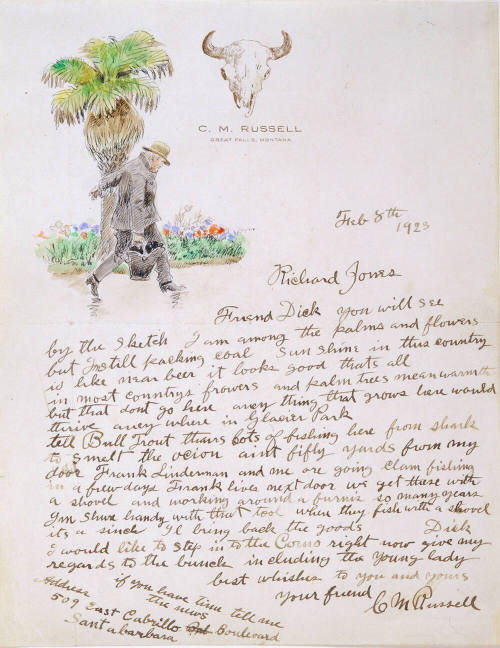 C. M. RUSSELL
GREAT FALLS, MONTANA
Feb 8th
1923
Richard Jones
Friend Dick you will see
by the sketch I am among the palms and flowers
but Im still packing coal Sun Shine in this country
is like near beer it looks good thats all
in most countrys frowers and palm trees mean warmth
but that dont go here aney thing that grows here would
thrive aney where in Glacier Park
tell Bull Trout thairs lots of fishing here from sharks
to smelt the ocion aint fifty yards from my
door Frank Linderman and me are going clam fishing
in a few days Frank lives next door we get these with
a shovel and working around a furnis so many years
Im shure handy with that tool when they fish with a shovel
its a sinch Il bring back the goods Dick
I would like to step in to the Como right now give my
regards to the bunch including the Young lady
best whishes to you and yours
your friend
C M Russell
if you have time tell me
the news
Address
509 East Cabrillo Boulevard
Santa barbara